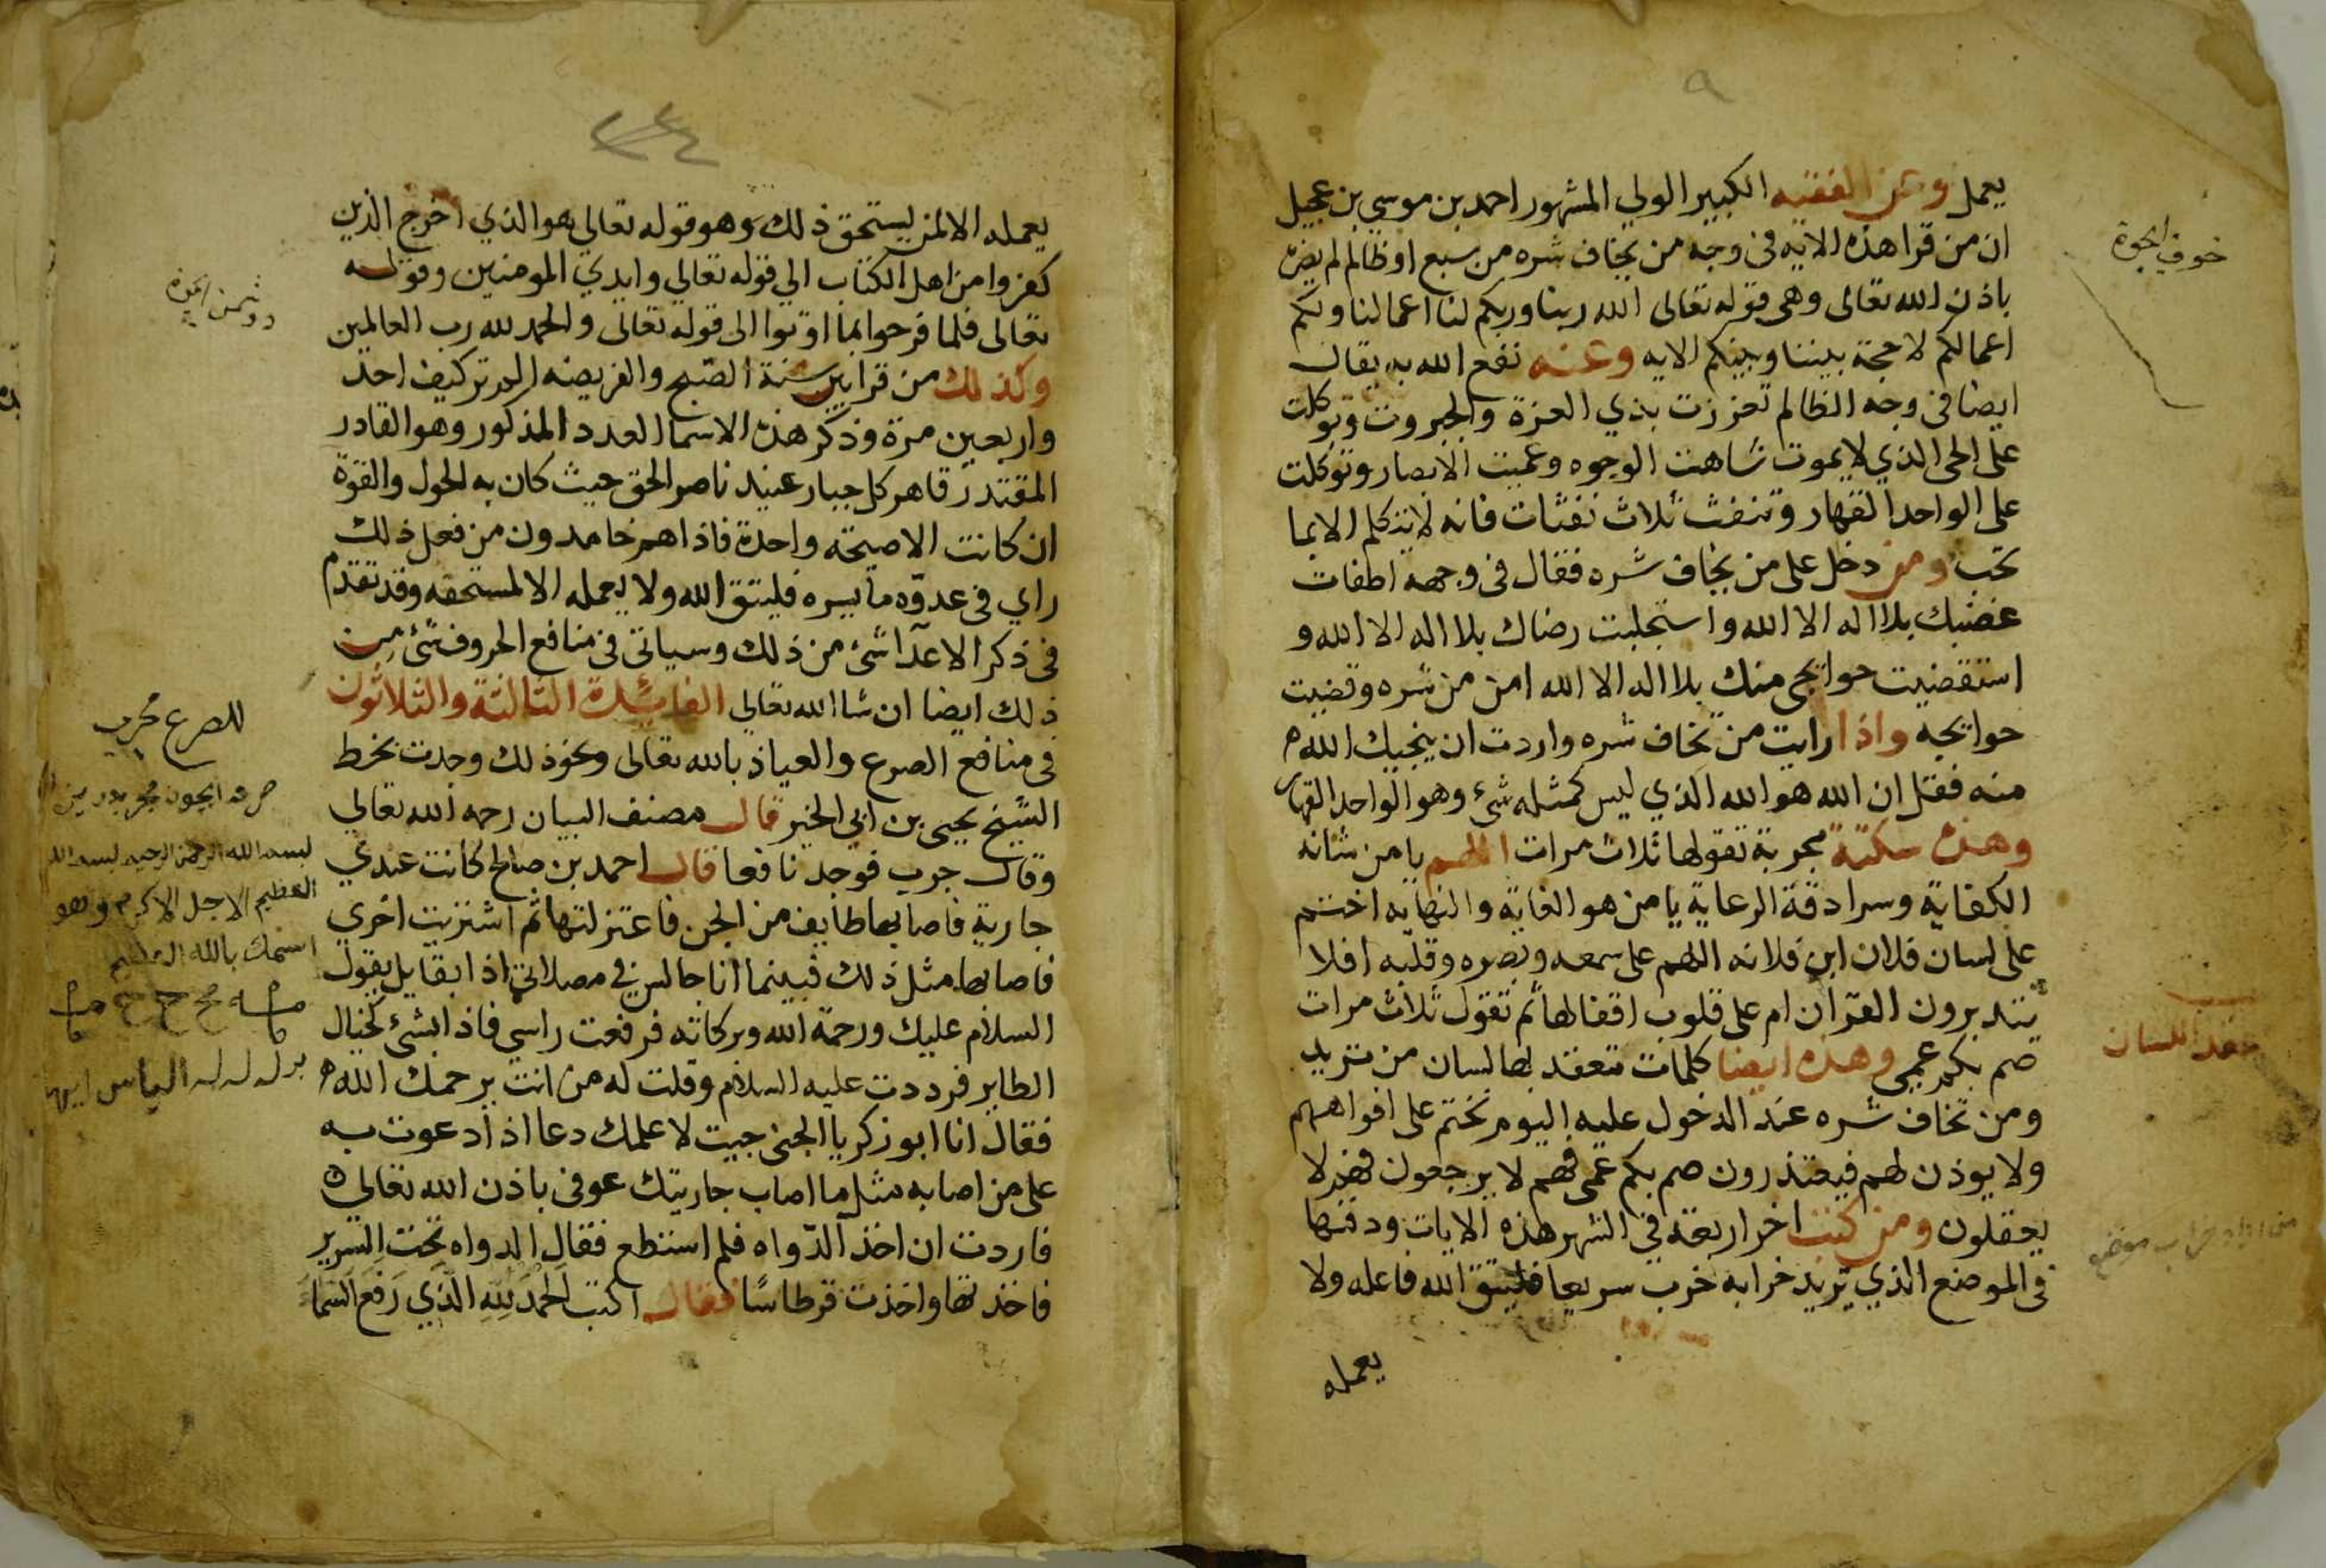 يعمل وعن الفقيه الكبير الولي المشهور احمد بن موسي بن عجيل
ان من قرا هذه الايه في وجه من يخاف شره من سبع او ظالم لم يضره
باذن الله تعالى وهي قوله تعالى الله ربنا وربكم لنا اعمالنا ولكم
اعمالكم لا حجة بيننا وبينكم الايه وعنه نفع الله به يقال
ايضا في وجه الظالم تعززت بذي العزة والجبروت وتوكلت
على الحي الذي لا يموت شاهت الوجوه وعميت الابصار وتوكلت
على الواحد القهار وتنفث ثلاث نفثات فانه لا يتكلم الا بما
تحب ومن دخل على من يخاف شره فقال في وجهه اطفات
غضبك بلا اله الا الله واستجلبت رضاك بلا اله الا الله و
استقضيت حوايجي منك بلا اله الا الله امن من شره وقضيت
حوايجه واذا رايت من تخاف شره واردت ان ينجيك الله
منه فقل ان الله هو الله الذي ليس كمثله شيء وهو الواحد القهار
وهذه سكتة مجربة تقولها ثلاث مرات اللهم يا من شانه
الكفاية وسرادقة الرعاية يا من هو الغاية والنهايه اختم
على لسان فلان ابن فلانه اللهم على سمعه وبصره وقلبه افلا
يتدبرون القرآن ام على قلوب اقفالها ثم تقول ثلاث مرات
صم بكم عمي وهذه ايضا كلمات تعقد بها لسان من تريد
ومن تخاف شره عند الدخول عليه اليوم نختم على افواههم
ولا يوذن لهم فيعتذرون صم بكم عمي فهم لا يرجعون فهم لا
يعقلون ومن كتب اخر اربعه في الشهر هذه الايات ودفنها
في الموضع الذي يريد خرابه خرب سريعا فليتق الله فاعله ولا
يعمله
عقد اللسان
يعمله الا لمن يستحق ذلك وهو قوله تعالي هو الذي اخرج الذين
كفروا من اهل الكتاب الي قوله تعالي وايدي المومنين وقوله
تعالى فلما فرحوا بما اوتوا الى قوله تعالى والحمد لله رب العالمين
وكذلك من قرا بين سنة الصبح والفريضه الم تر كيف احد
واربعين مرة وذكر هذه الاسما العدد المذكور وهو القادر
المقتدر قاهر كل جبار عنيد ناصر الحق حيث كان به الحول والقوة
ان كانت الا صيحة واحدة فاذا هم خامدون من فعل ذلك
راي في عدوه ما يسره فليتق الله ولا يعمله الا لمستحقه وقد تقدم
في ذكر الاعدآ شئ من ذلك وسياتي في منافع الحروف شئ من
ذلك ايضا ان شا الله تعالي الفائدة الثالثة والثلاثون
في منافع الصرع والعياذ بالله تعالى ونحو ذلك وجدت بخط
الشيخ يحيى بن ابي الخير قال مصنف البيان رحمه الله تعالي
وقال جرب فوجد نافعا قال احمد بن صالح كانت عندي
جارية فاصابها طايف من الجن فاعتزلتها ثم اشتريت اخري
فاصابها مثل ذلك فبينما انا جالس في مصلاتي اذا بقايل يقول
السلام عليك ورحمة الله وبركاته فرفعت راسي فاذا بشئ كخيال
الطاير فرددت عليه السلام وقلت له من انت يرحمك الله
فقال انا ابو زكريا الجني جيت لاعلمك دعا اذا دعوت به
على من اصابه مثل ما اصاب جاريتك عوفي باذن الله تعالى
فاردت ان اخذ الدواه فلم استطع فقال الدواه تحت السرير
فاخذتها واخذت قرطاسا فقال اكتب الحمد لله الذي رفع السماء
للصرع مجرب
بسم الله الرحمن الرحيم بسم الله
العظيم الاجل الاكرم